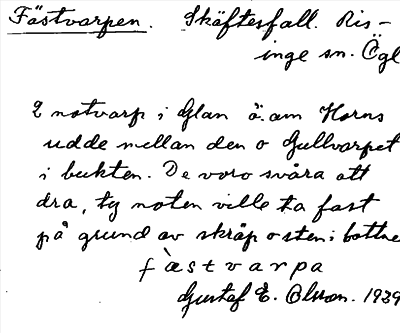 Fästvarpen. Skäftesfall. Ris-
inge sn. Ögl
2 notvarp i Glan ö. om Horns
udde mellan den o Gullvarpet
i bukten. De voro svåra att
dra, ty noten ville ta fast
på grund av skråp o sten i bottne
fàstvarpa
Gustaf E. Olsson. 1939